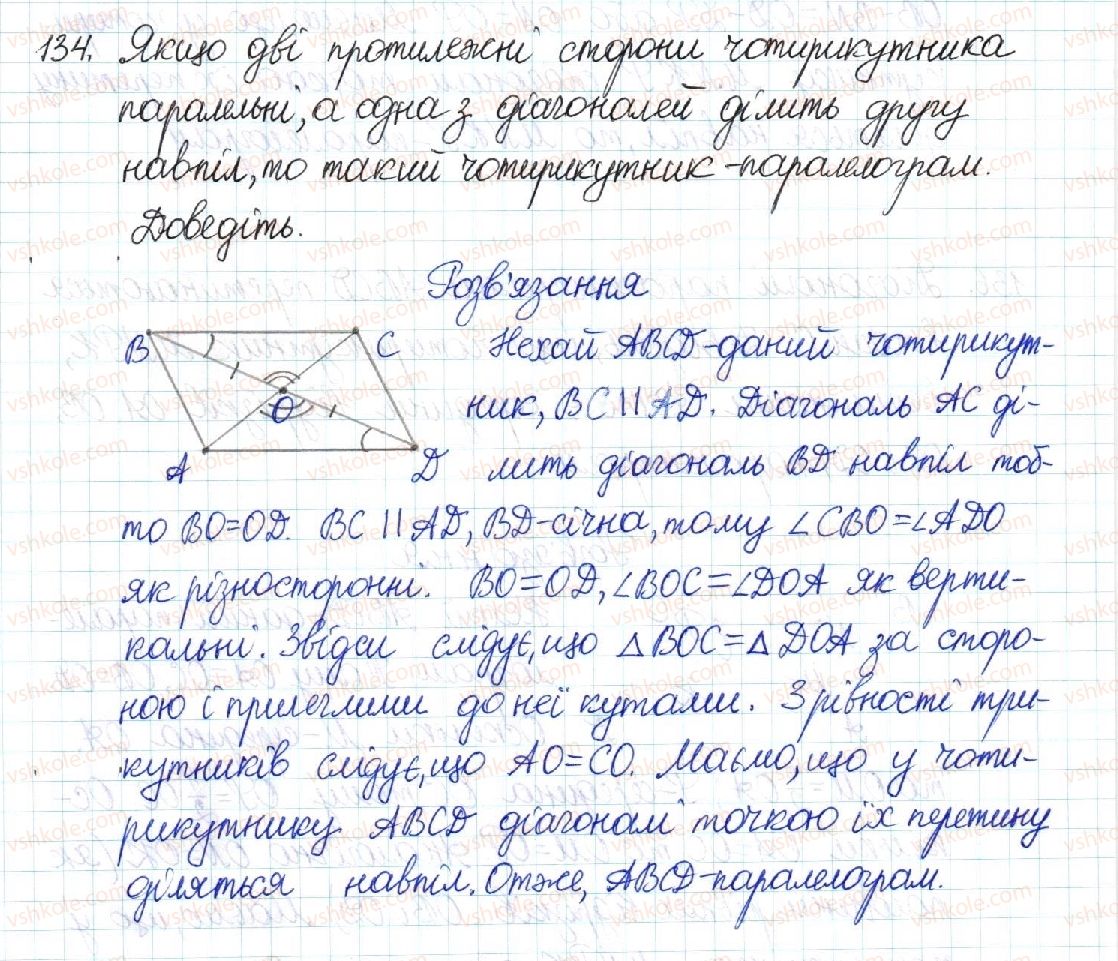 134. Якщо дві протилежні сторони чотирикутника
паралельні, а одна з діагоналей ділить другу
навпіл, то такий чотирикутник - паралелограм.
Доведіть.
Розв'язання
B C O A D
Нехай ABCD - даний чотирикут-
ник, BC || AD. Діагональ AC ді-
лить діагональ BD навпіл тоб-
то BO = OD. BC || AD, BD - січна, тому ∠CBO = ∠ADO
як різносторонні. BO = OD, ∠BOC = ∠DOA як верти-
кальні. Звідси слідує, що △BOC = △DOA за сторо-
ною і прилеглими до неї кутами. З рівності три-
кутників слідує, що AO = CO. Маємо, що у чоти-
рикутнику ABCD діагоналі точкою їх перетину
діляться навпіл. Отже, ABCD - паралелограм.
vshkole.com